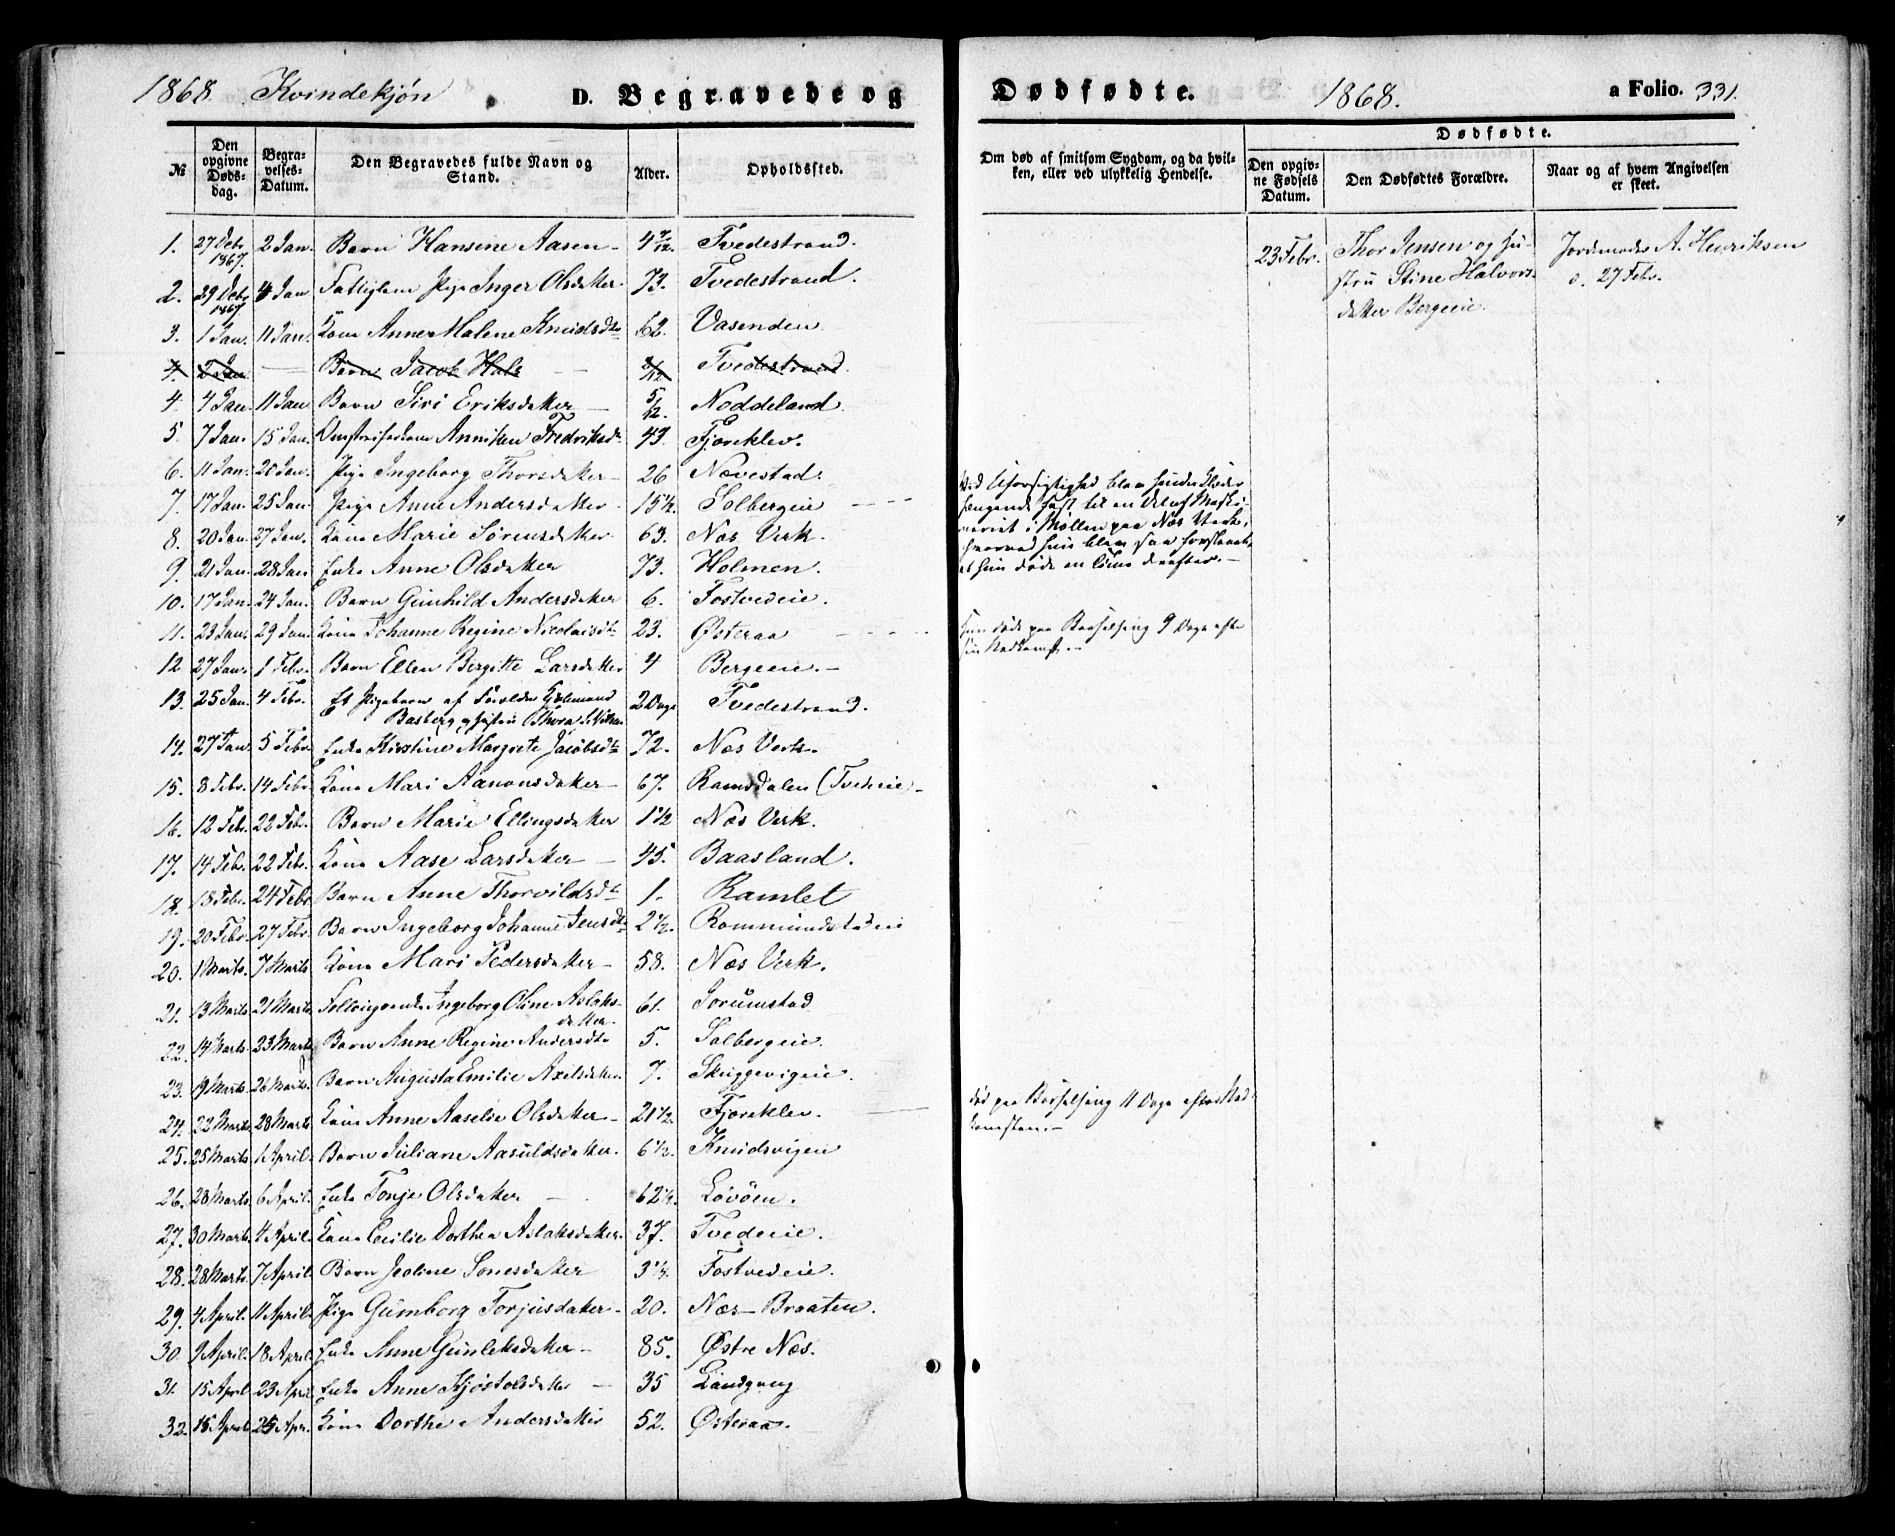 1868 Kvindekjøn D. Begravede og Dødfødte. 1868. a Folio. 331.
№ Den opgivne Dødsdag. Begravelses-Datum. Den Begravedes fulde Navn og Stand. Alder. Opholdssted.
Om død af smitsom Sygdom, og da hvilken, eller ved ulykkelig Hendelse. Dødfødte. Den opgivne Fødsels Datum. Den Dødfødtes Forældre. Naar og af hvem Angivelsen er skeet.
1. 27 Decbr 1867. 2 Jan. Barn Hansine Aasen 4 7/12. Tvedestrand.
2. 29 Decbr 1867 4 Jan Fattiglem Pige Inger Olsdatter 73. Tvedestrand.
3. 1 Jan. 11 Jan. Kone Anne Malene Knudsdtr 62. Vasenden
4. 2 Jan. — Barn Jacob Hals — Tvedestrand.
4. 4 Jan. 11 Jan Barn Siri Eriksdatter 5/12. Noddeland
5. 7 Jan. 15 Jan. Anniken Fredriksdtr 43. Fjæreklev.
6. 11 Jan. 20 Jan. Pige Ingeborg Thorsdatter 26 Nævestad.
7. 17 Jan. 25 Jan. Pige Anne Andersdatter 15 1/2. Solbergeie
8. 20 Jan. 27 Jan. Kone Marie Sørensdatter 63. Næs Verk.
9. 21 Jan. 28 Jan Enke Anne Olsdatter 73. Holmen.
10. 17 Jan. 24 Jan. Barn Gunhild Andersdatter 6. Fostvedeie.
11. 23 Jan. 29 Jan. Kone Johanne Regine Nicolaisdtr 23. Østeraa
12 27 Jan. 1 Febr. Barn Ellen Bergitte Larsdatter 4 Bergeeie.
13. 25 Jan. 4 Febr. Et Pigebarn af Forældre
Basberg og Hustru Thora 2 Dage Tvedestrand.
14. 27 Jan. 5 Febr. Enke Kirstine Margrete Jacobsdtr 72. Næs Verk.
15. 8 Febr. 14 Febr Kone Mari Aanonsdatter 67. Ramsdalen
16. 12 Febr. 22 Febr. Barn Marie Ellingsdatter 1 1/2 Næs Verk.
17. 14 Febr. 22 Febr. Kone Aase Larsdatter 45. Baasland.
18. 18 Febr. 24 Febr Barn Anne Thorvildsdtr 1. Ramlet
19. 20 Febr. 27 Febr. Barn Ingeborg Johanne Jensdtr 2 1/2. Rommundstadeie
20. 1 Marts. 7 Marts Kone Mari Pedersdatter 58. Næs Verk.
21. 13 Marts 21 Marts Ingeborg Oline Aslaksdatter. 61. Sorumstad
22. 14 Marts. 23 Marts Barn Anne Regine Andersdtr 5. Solbergeie.
23. 19 Marts. 26 Marts. Barn Augusta Emilie Axelsdatter 7. Skuggevigeie.
24. 22 Marts. 28 Marts Kone Anne Aaselie Olsdatter 21 1/2. Fjæreklev.
25. 25 Marts. 1 April. Barn Juliane Aasuldsdatter. 6 1/2. Knudsvigen
26. 28 Marts 6 April. Enke Tonje Olsdatter 62 1/2. Lövöen.
27. 30 Marts. 4 April. Kone Cecilie Dorthea Aslaksdatter. 37. Tvedeeie.
28. 28 Marts. 7 April. Barn Jeoline Sonesdatter 3 1/4. Fostvedeie.
29. 4 April. 11 April. Pige Gumborg Torjusdatter 20. Næs-Braaten.
30. 9 April. 18 April. Enke Anne Gunleksdatter 85. Østre Næs.
31. 15 April 23 April Enke Anne Kjöstolsdatter 35 Landgang
32. 18 April 25 Apr. Kone Dorthe Andersdatter 52. Østeraa.
Ved Uforsigtighed blev hendes Klæder
hængende fast til en Del af Maski-
neriet i Møllen paa Næs Verk,
hvorved hun blev saa forslaaet,
at hun døde en Time derefter.
Hun døde paa Barselseng 9 Dage efter
sin Nedkomst.
død paa Barselseng 11 Dage efter Ned-
komsten.
23 Febr. Thor Jensen og Hu-
stru Stine Halvors-
datter Bergeeie.
Jordemoder A. Henriksen
d. 27 Febr.